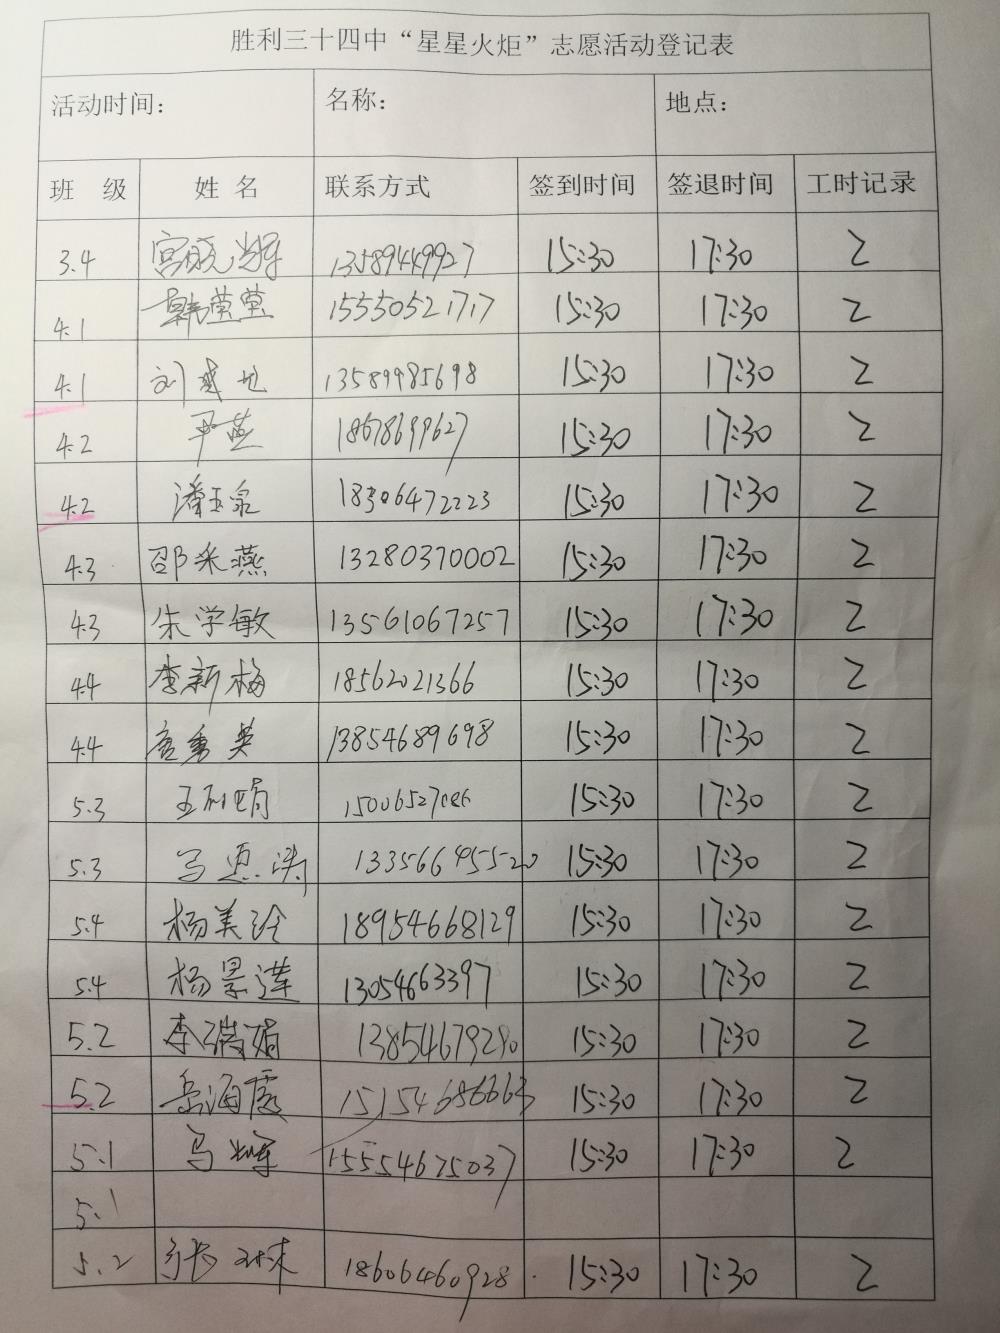 胜利三十四中“星星火炬”志愿活动登记表
活动时间： 名称： 地点：
班 级 姓 名 联系方式 签到时间 签退时间 工时记录
3.4 宫晓辉 13589449927 15:30 17:30 2
4.1 韩莹莹 15550521717 15:30 17:30 2
4.1 刘 13589985698 15:30 17:30 2
4.2 尹燕 18678699627 15:30 17:30 2
4.2 潘玉泉 18306472223 15:30 17:30 2
4.3 邵采燕 13280370002 15:30 17:30 2
4.3 朱学敏 13561067257 15:30 17:30 2
4.4 李新梅 18562021366 15:30 17:30 2
4.4 唐秀英 13854689698 15:30 17:30 2
5.3 王利娟 15:30 17:30 2
5.3 马 13356645520 15:30 17:30 2
5.4 杨美玲 18954668129 15:30 17:30 2
5.4 杨景莲 13054663397 15:30 17:30 2
5.2 李瑞娟 13854679280 15:30 17:30 2
5.2 岳海霞 15154686663 15:30 17:30 2
5.1 马辉 15554675037 15:30 17:30 2
5.1
5.2 张 18606460928 15:30 17:30 2